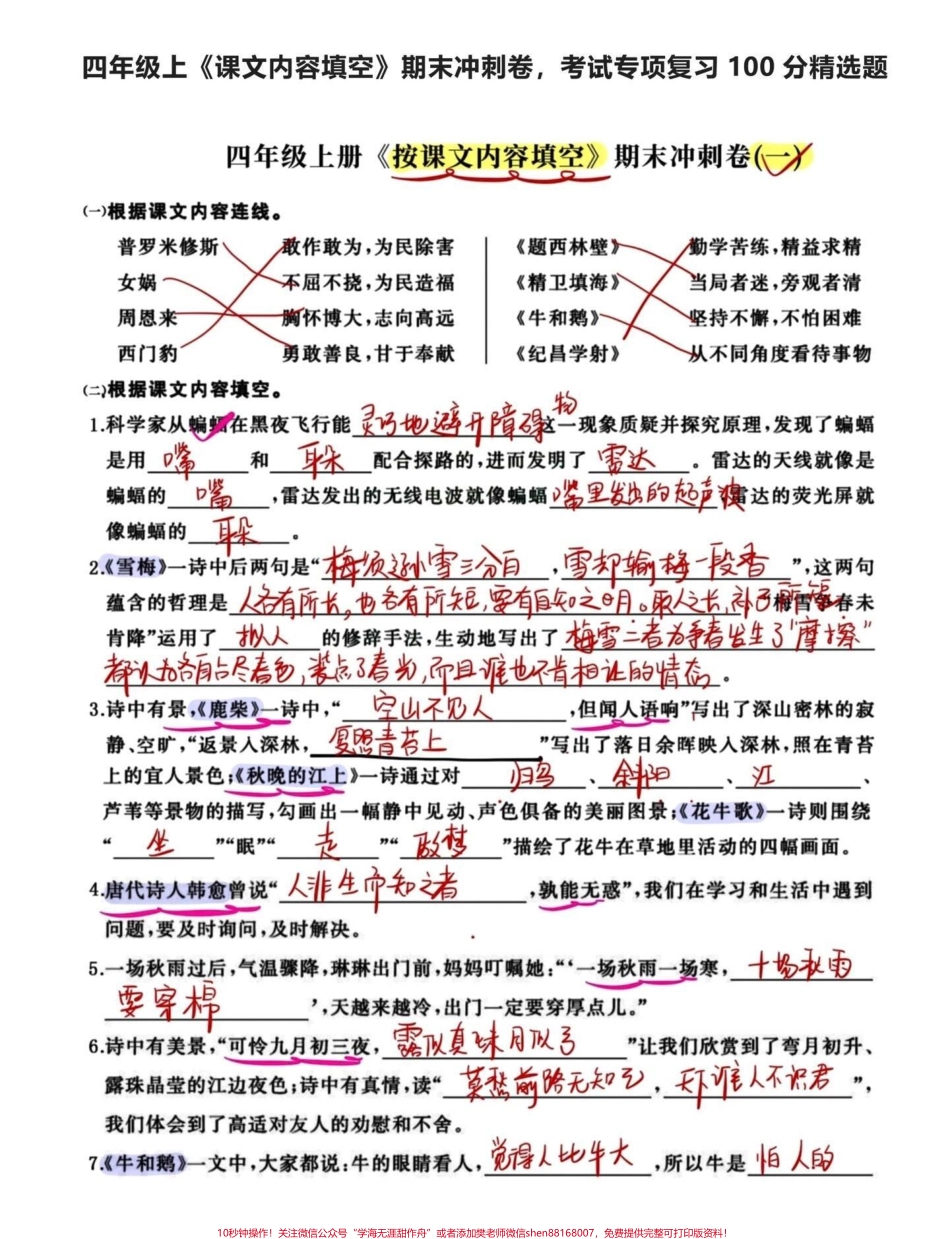 四年级上《课文内容填空》期末冲刺卷，考试专项复习 100 分精选题
四年级上册《按课文内容填空》期末冲刺卷(一)
(一)根据课文内容连线。
普罗米修斯 敢作敢为,为民除害 《题西林壁》 勤学苦练,精益求精
女娲 不屈不挠,为民造福 《精卫填海》 当局者迷,旁观者清
周恩来 胸怀博大,志向高远 《牛和鹅》 坚持不懈,不怕困难
西门豹 勇敢善良,甘于奉献 《纪昌学射》 从不同角度看待事物
(二)根据课文内容填空。
1.科学家从蝙蝠在黑夜飞行能灵巧地避开障碍物这一现象质疑并探究原理,发现了蝙蝠
是用 嘴 和 耳朵 配合探路的,进而发明了 雷达 。雷达的天线就像是
蝙蝠的 嘴 ,雷达发出的无线电波就像蝙蝠嘴里发出的超声波,雷达的荧光屏就
像蝙蝠的 耳朵 。
2.《雪梅》一诗中后两句是“梅须逊雪三分白,雪却输梅一段香”,这两句
蕴含的哲理是人各有所长,也各有所短,要有自知之明。取人之长,补己所短。“梅雪争春未
肯降”运用了 拟人 的修辞手法,生动地写出了梅雪二者为争春发生了“摩擦”
都认为各自占尽春色,装点了春光,而且谁也不肯相让的情态。
3.诗中有景,《鹿柴》一诗中,“ 空山不见人 ,但闻人语响”写出了深山密林的寂
静、空旷,“返景入深林, 复照青苔上 ”写出了落日余晖映入深林,照在青苔
上的宜人景色;《秋晚的江上》一诗通过对 归鸟 、 斜阳 、 江 、
芦苇等景物的描写,勾画出一幅静中见动、声色俱备的美丽图景;《花牛歌》一诗则围绕
“ 坐 ”“眠”“ 走 ”“ 做梦 ”描绘了花牛在草地里活动的四幅画面。
4.唐代诗人韩愈曾说“ 人非生而知之者 ,孰能无惑”,我们在学习和生活中遇到
问题,要及时询问,及时解决。
5.一场秋雨过后,气温骤降,琳琳出门前,妈妈叮嘱她:“‘一场秋雨一场寒, 十场秋雨
要穿棉 ’,天越来越冷,出门一定要穿厚点儿。”
6.诗中有美景,“可怜九月初三夜, 露似真珠月似弓 ”让我们欣赏到了弯月初升、
露珠晶莹的江边夜色;诗中有真情,读“ 莫愁前路无知己 , 天下谁人不识君 ”,
我们体会到了高适对友人的劝慰和不舍。
7.《牛和鹅》一文中,大家都说:牛的眼睛看人, 觉得人比牛大 ,所以牛是 怕人的
10秒钟操作！关注微信公众号“学海无涯甜作舟”或者添加樊老师微信shen88168007，免费提供完整可打印版资料！